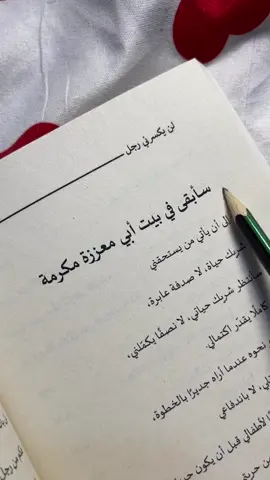 لن يكسرني رجل
سأبقى في بيت أبي معززة مكرمة
أن يأتي من يستحقني
شريك حياة، لا صدفة عابرة،
سأنتظر شريك حياتي، لا نصفًا يكمّلني،
كاملًا يقدّر اكتمالي.
نحوه عندما أراه جديرًا بالخطوة،
لا باندفاعي
لأطفالي قبل أن يكون